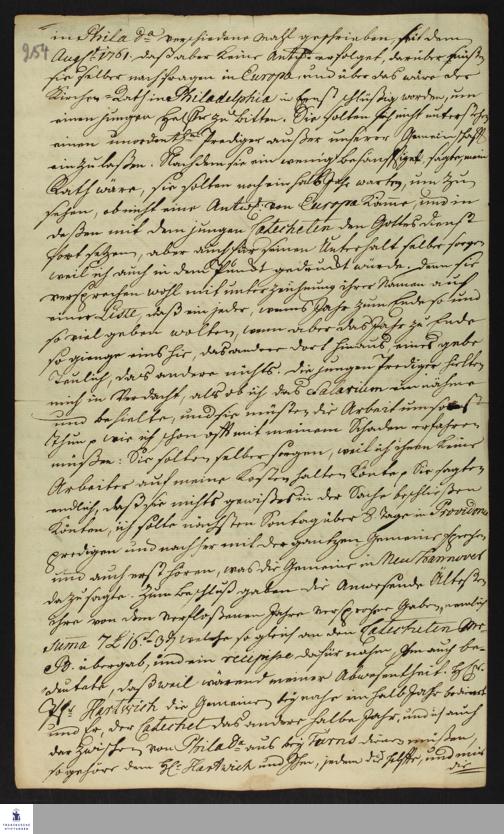 254
in Philada verschiedene Mahl geschrieben seit dem
Augst 1761. daß aber keine Antw. erfolget, darüber müsten
sie selber nachfragen in Europa, und über das wäre der
Kirchen-Rath in Philadelphia in Ernst schlüssig worden, um
einen jungen Helfer zu bitten. Sie solten sich nicht unterstehen
einen unordentl. Prediger außer unserer Gemeinschafft
einzulaßen. Nachdem sie ein wenig besänftiget, sagte, mein
Rath wäre, sie solten noch ein halb Jahr warten, um zu
sehen, ob nicht eine Antwort von Europa käme, und in
deßen mit dem jungen Catecheten den Gottesdienst
fortsetzen, aber auch für seinen Unterhalt selber sorgen
weil ich auch in dem Punct gedruckt würde, denn sie
versprechen wohl mit unterzeichnung ihrer Namen auf
einer Liste, daß ein jeder, wenns Jahr zum Ende so und
so viel geben wolten, wenn aber das Jahr zu Ende
so gienge eins hie, das andere dort hinaus, eines gebe
treulich, das andere nichts. die jungen Prediger hielten
mich in Verdacht, als ob ich das Salarium einnähme
und behielte, und sie müsten die Arbeit umsonst
thun, wie ich schon offt mit meinem Schaden erfahren
müßen: Sie solten selber sorgen, weil ich ihnen keine
Arbeiter auf meine Kosten halten könte. Sie sagten
endlich, daß sie nichts gewißes in der Sache beschließen
könten, ich solte nächsten Sontag über 8 Tage in Providence
predigen und nachher mit der gantzen Gemeine sprechen
und auch erst hören, was die Gemeine in Neu Hannover
dazu sagte. Zum beschluß gaben die Anwesende Ältesten
ihre von dem verfloßenen Jahre versprochne Gaben, nemlich
Suma 7 £ 16 sh 3d. welche so gleich an den Catecheten
B. übergab, und ein recipisse dafür nahm, ihm auch be-
deutete, daß weil während meiner Abwesenheit H. P.
Pst. Hartwich die Gemeinen bey nahe ein halb Jahr bedient
und er, der Catechet das andere halbe Jahr, und ich auch
der zwischen von Philada aus bey Turns dienen müßen,
so gehöre dem H. Hartwich und Ihm, jedem die helffte, und mir
die
FRANCKESCHE STIFTUNGEN